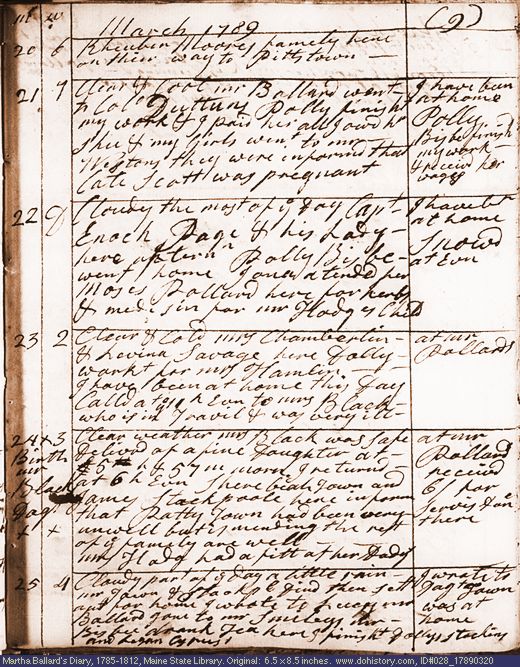 March 1789
(9)
20 6 Rheuben Moores family here
on their way to Pittstown
21 7 Clear & Cool mr Ballard went
to Colo Duttuns Polly finisht
my work & I paid her all I owd her
Shee & my girls went to mr
Westons they were informd that
Cate Scott was pregnant
I have been
at home
Polly
Bisbe finisht
my work
& receivd her
wages
22 D Cloudy the most of ye day Capt
Enoch Page & his Lady
here aftern Polly Bisbe
went home Jonas atended her
Moses Pollard here for herbs
& medisin for mr Hodges Child
I have been
at home
Snowd
at Evn
23 2 Clear & Cold mrs Chamberlin
& Levina Savage here Dolly
workt for mrs Hamlin
I have been at home this day
Calld at 9 h Evn to mrs Black
who is in Travil & was very ill
at mr
Pollards
24 x 3 Clear weather mrs Black was safe
Birth
mr
Black
Dagt
x x
Delivd of a fine Daughter at
5 h & 57 m morn I returnd
at 6 h Evn Hezekiah Town and
James Stackpoole here inform
that Patty Town had been very
unwell but is mending the rest
of ye family are well
mrs Hodg had a fitt at her Dads
at mr
Pollard
receivd
6/ for
servis don
there
25 4 Cloudy part of ye day a little rain
mr Town & Stackp dind then sett
out for home I wrote to
Ballard gone to mr Smileys
here I finisht Dollys stockins
and began Cyruss
I wrote to
Dagt Town
was at
home
Martha Ballard's Diary, 1785-1812, Maine State Library. Original: 6.5 x 8.5 inches. www.dohistory.com, ID#028_17890320